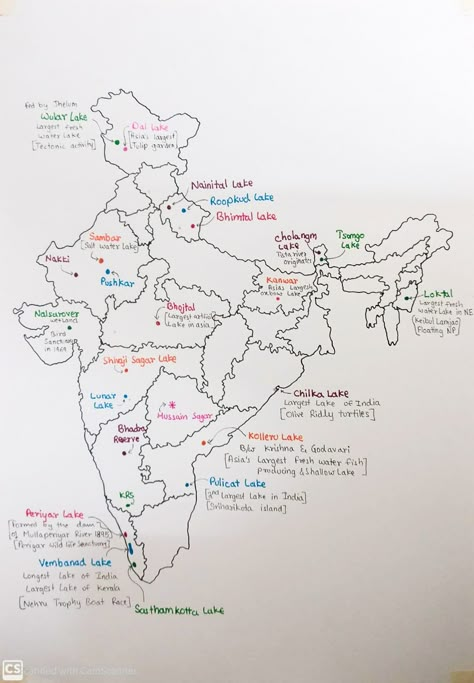 Fed by Jhelum
Wular Lake
Largest fresh
water Lake
[Tectonic activity]
Dal Lake
[Asia's largest
Tulip garden]
Nainital Lake
Roopkud Lake
Bhimtal Lake
Cholangm
Lake
Tsomgo
Lake
Sambar
[Salt water Lake]
Nakti
Pushkar
Kanwar
Asia's Largest
oxbow Lake
Loktal
Largest fresh
water Lake in NE
[Keibul Lamjao]
Floating NP
Nalsarover
wetland
Bird
Sanctuary
in 1969
Bhojtal
[Largest artificial
Lake in asia
Shivaji Sagar Lake
Lunar
Lake
Hussain Sagar
Chilka Lake
Largest Lake of India
[Olive Ridly turtles]
Bhadra
Reserve
Kolleru Lake
B/w Krishna & Godavari
[Asia's Largest fresh water fish]
producing & shallow Lake
KRS
Pulicat Lake
[2nd Largest Lake in India]
[Sriharikota island]
Periyar Lake
[Formed by the dam
of Mullaperiyar River 1895]
[Periyar Wild Life Sanctuary]
Vembanad Lake
Longest Lake of India
Largest Lake of Kerala
[Nehru Trophy Boat Race]
Sasthamkotta Lake
CS
Scanned with CamScanner